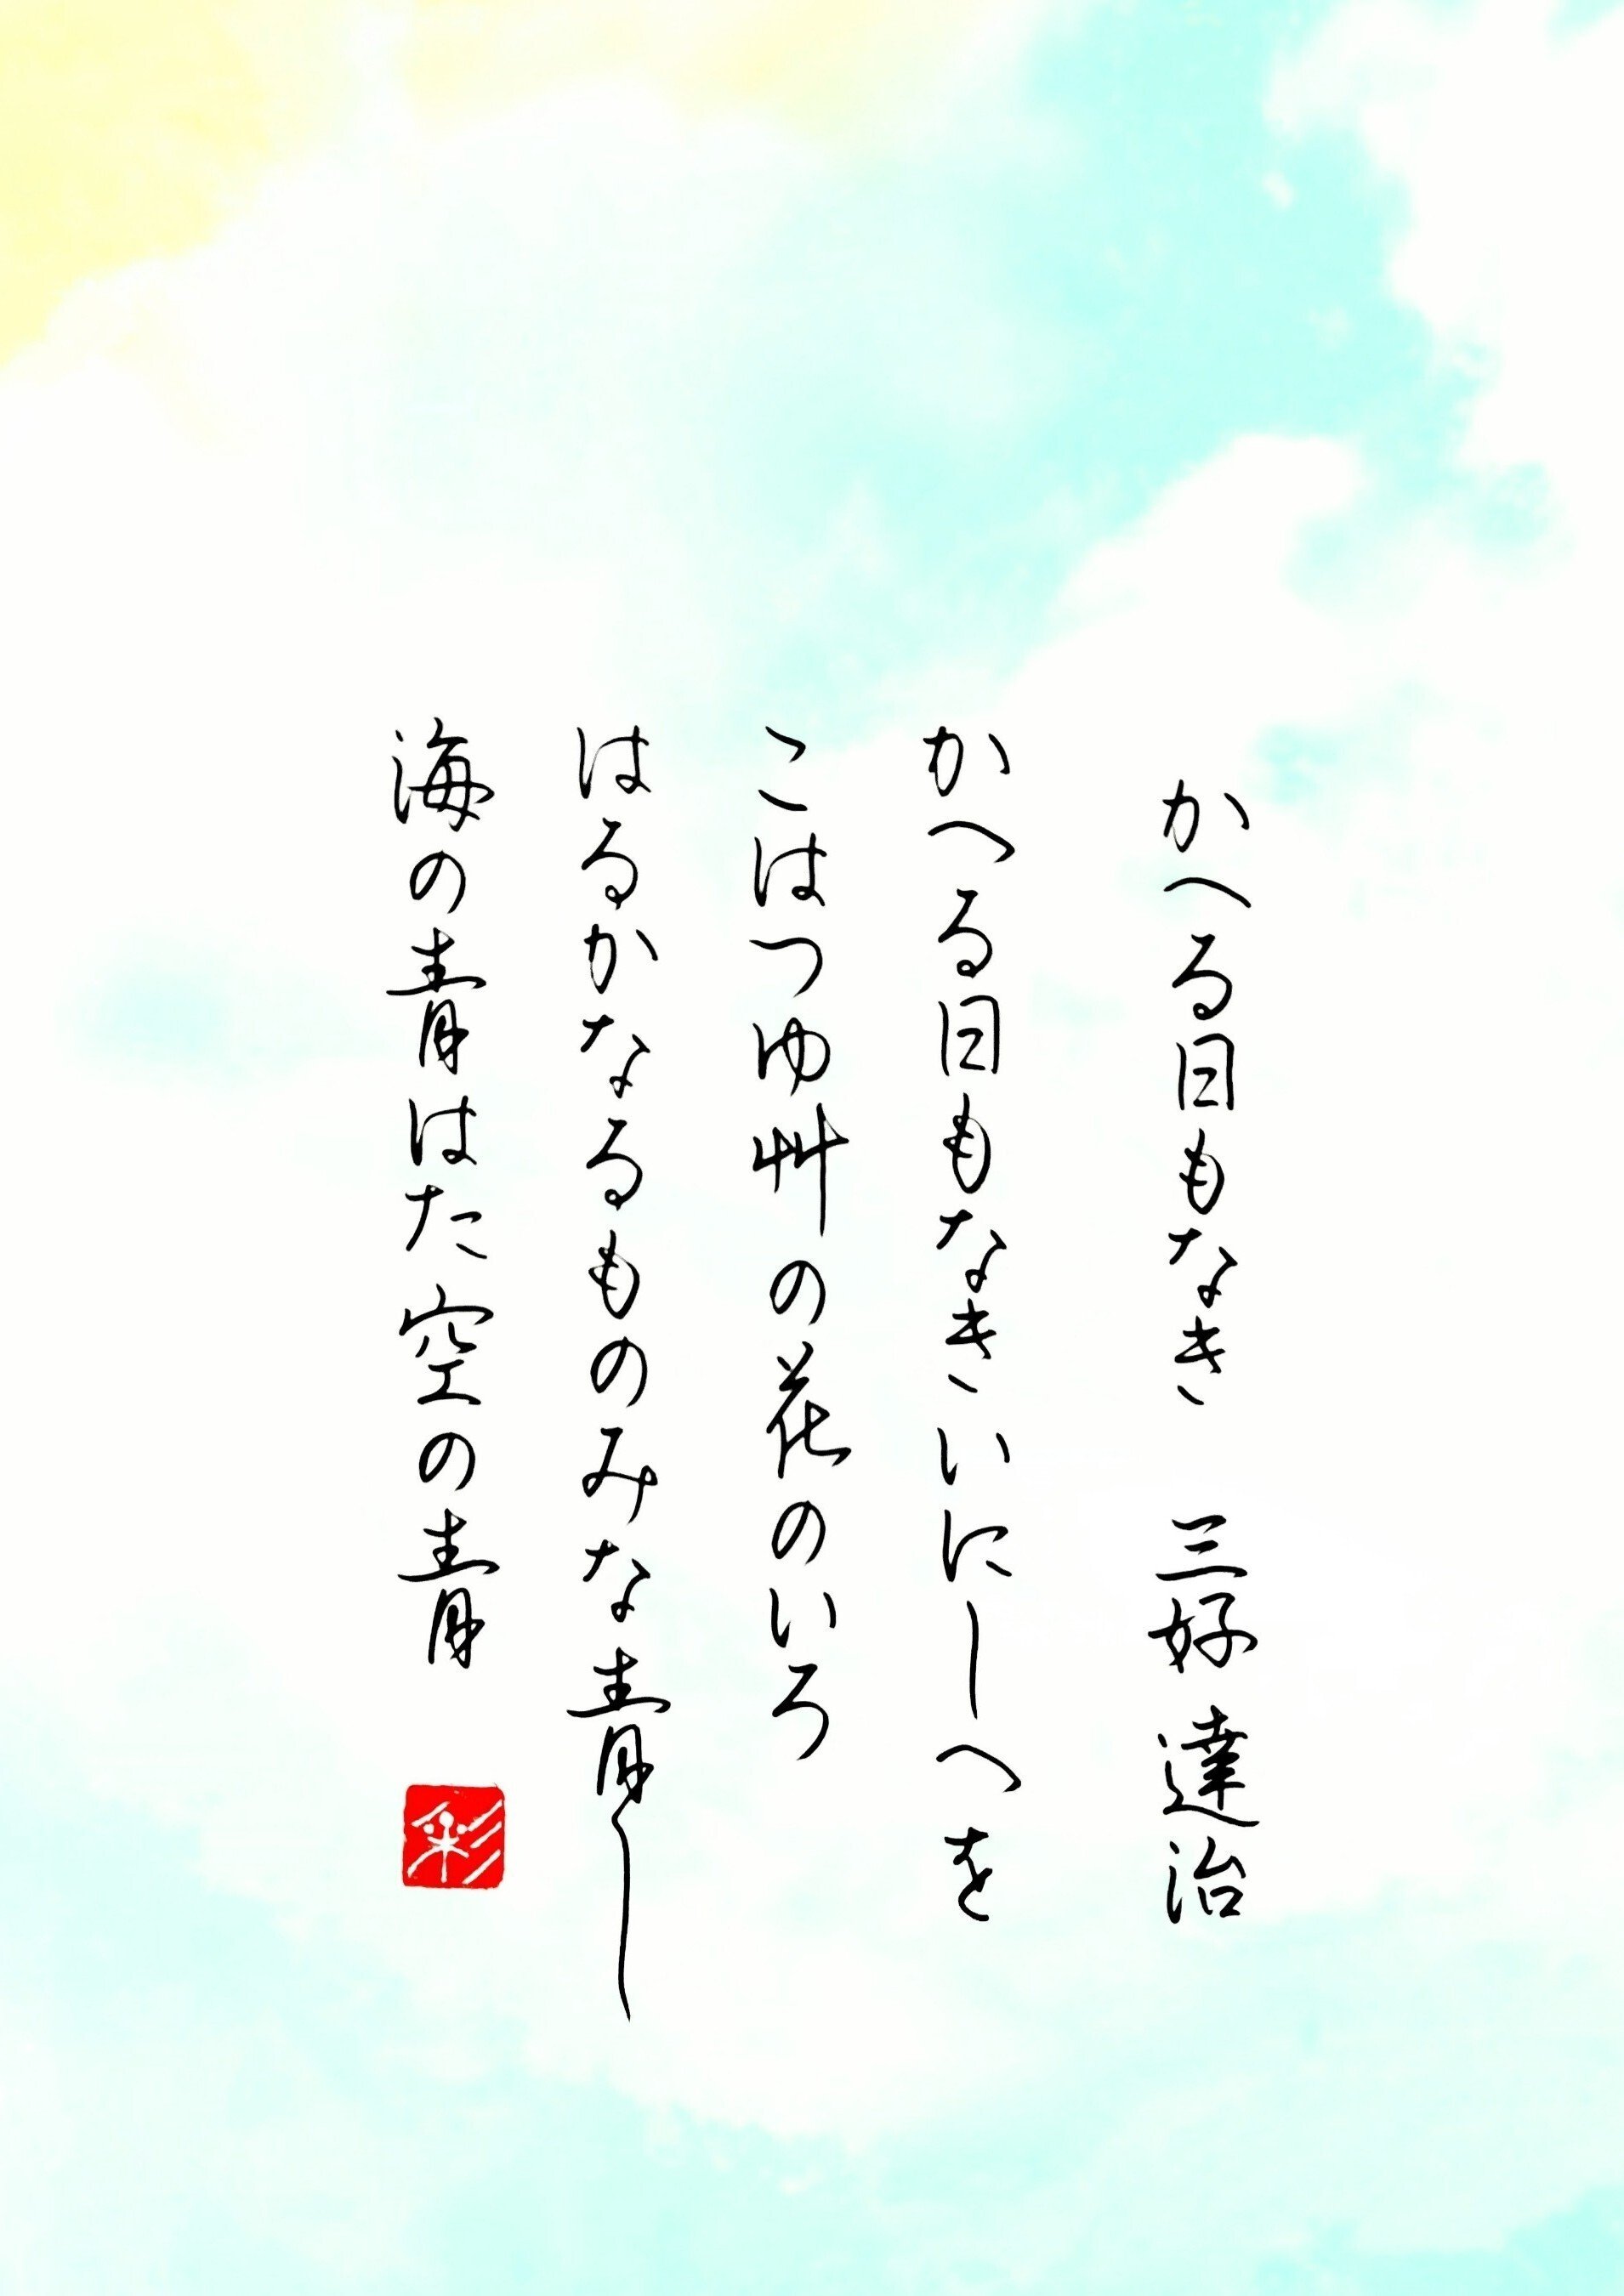 かへる日もなき 三好達治
かへる日もなきいにしへを
こはつゆ艸の花のいろ
はるかなるものみな青し
海の青はた空の青
彩